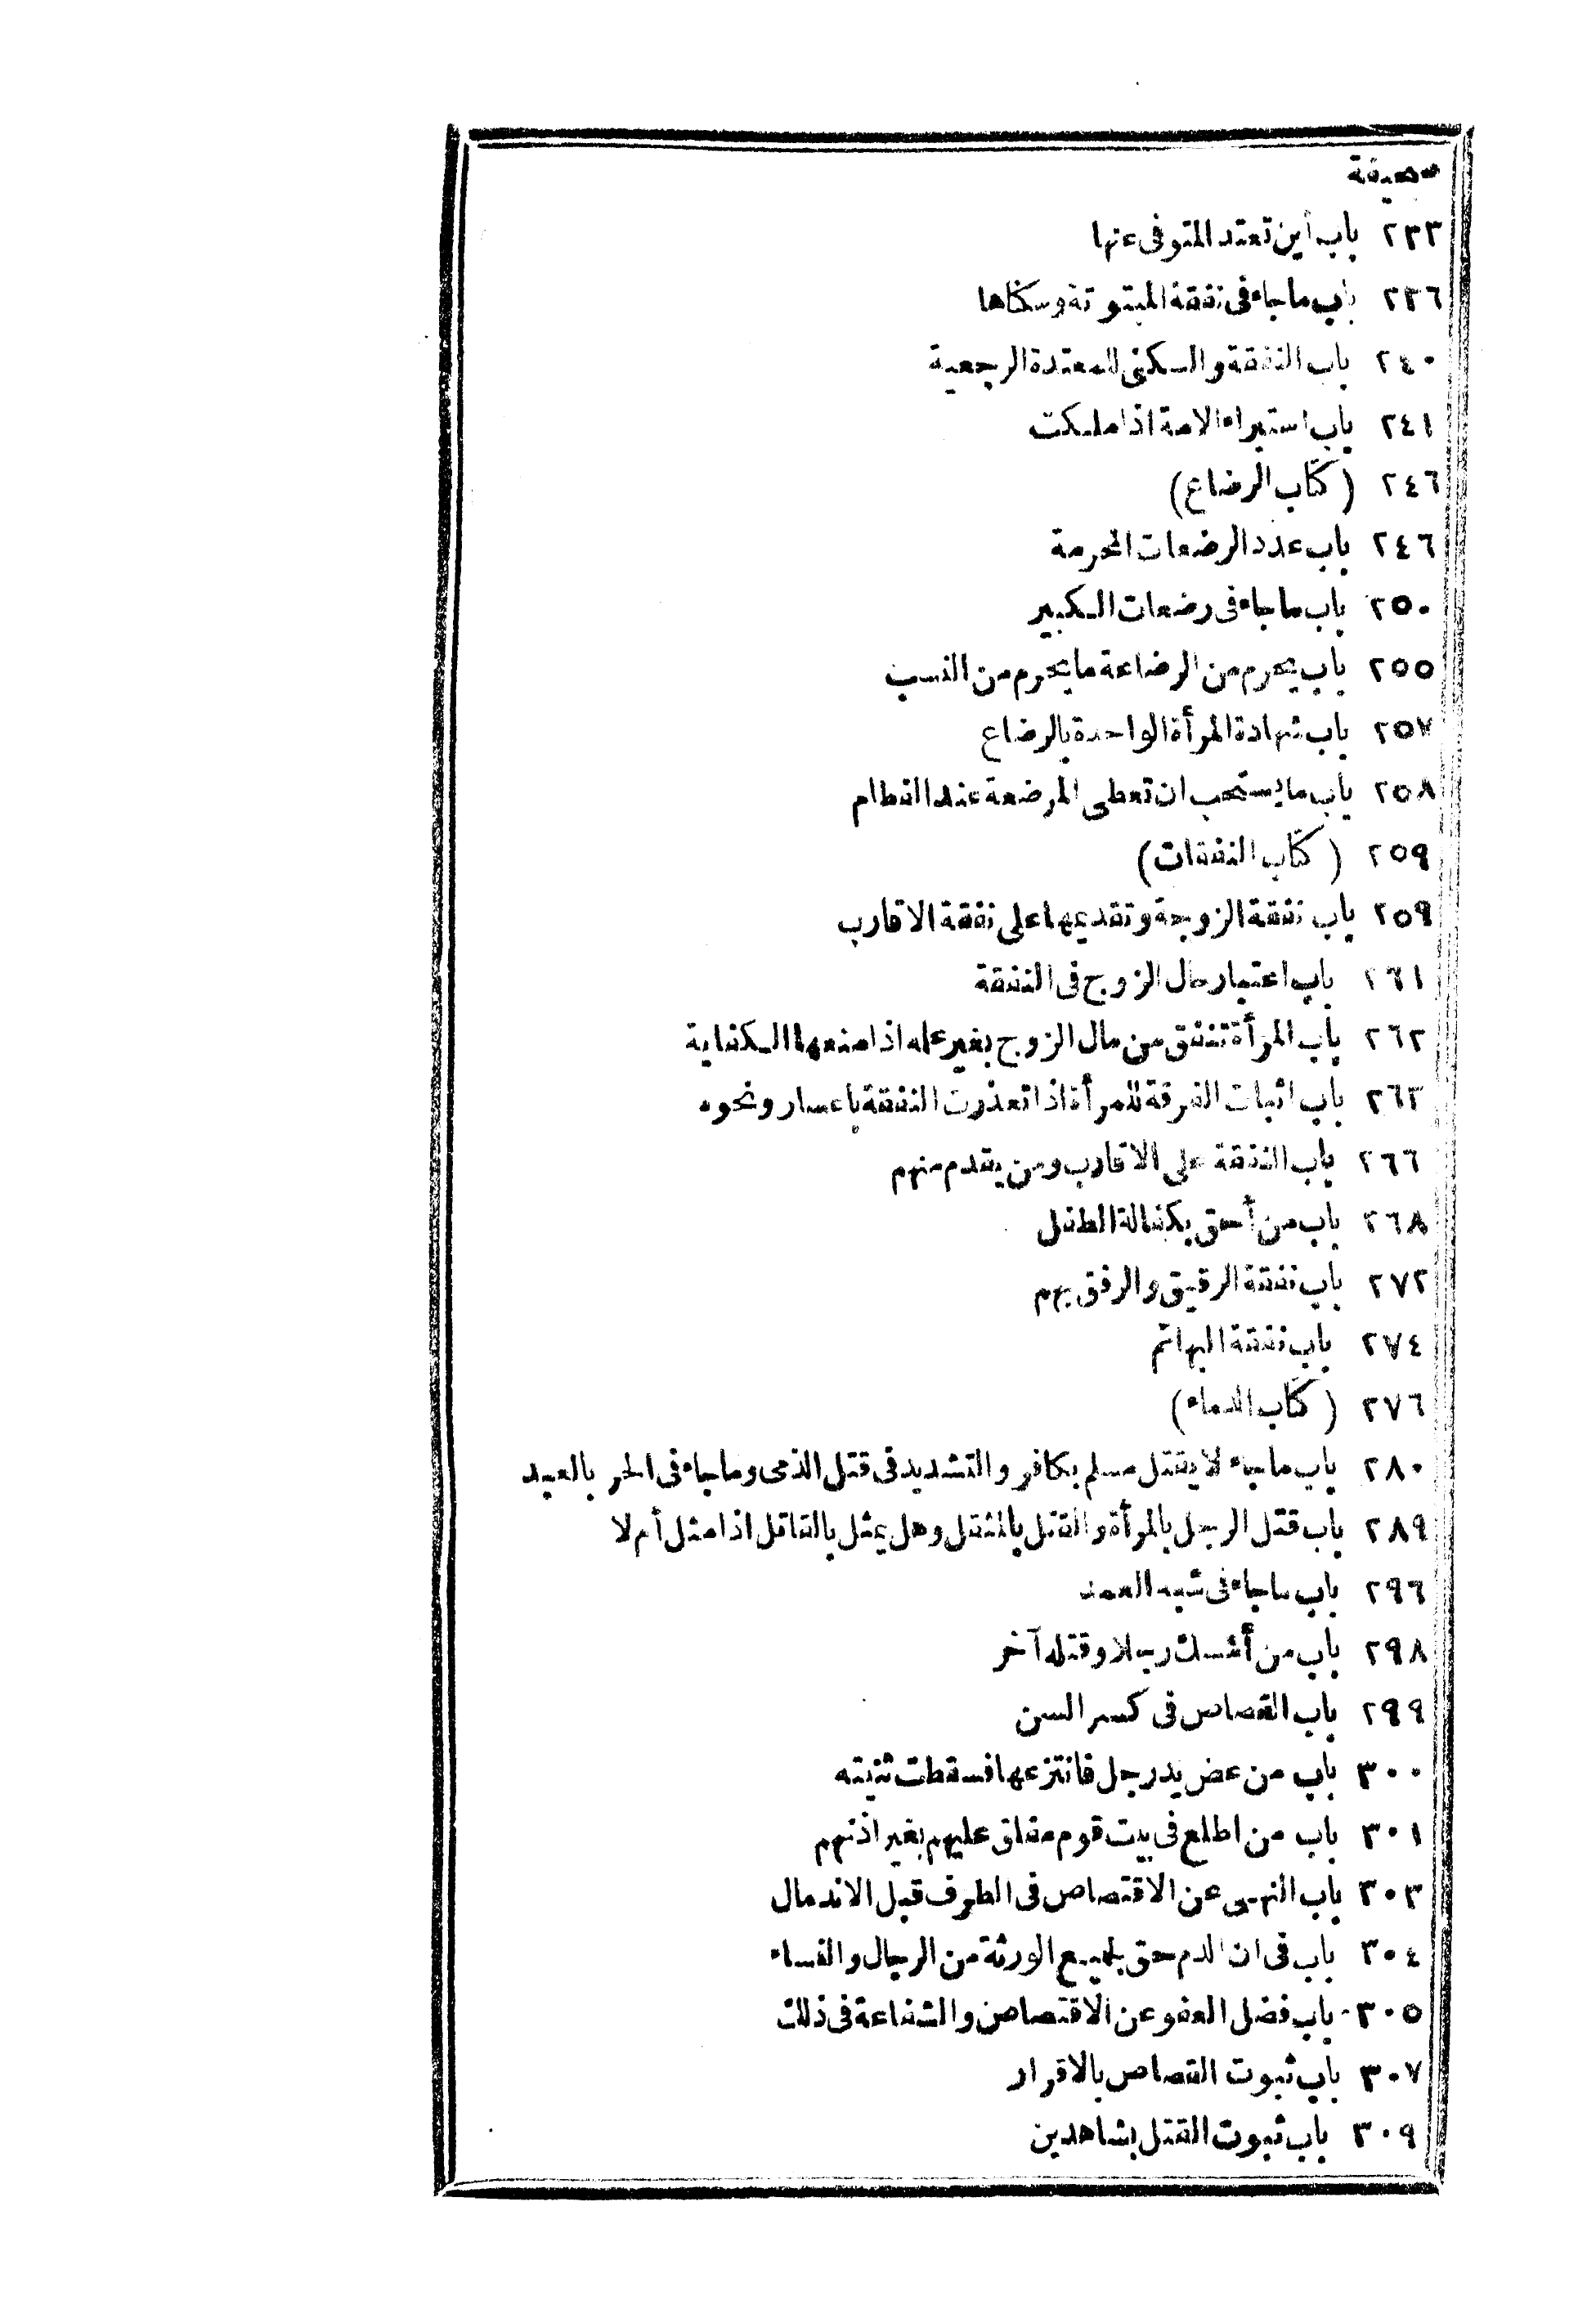 صحيفة
٢٣٣ باب أين تعتد المتوفى عنها
٢٣٦ باب ماجاء فى نفقة المبتوتة وسكناها
٢٤٠ باب النفقة والسكنى للمعتدة الرجعية
٢٤١ باب استبراء الامة اذا ملكت
٢٤٦ (كتاب الرضاع)
٢٤٦ باب عدد الرضعات المحرمة
٢٥٠ باب ماجاء فى رضعات الكبير
٢٥٥ باب يحرم من الرضاعة ما يحرم من النسب
٢٥٧ باب شهادة المرأة الواحدة بالرضاع
٢٥٨ باب ما يستحب ان تعطى المرضعة عند الفطام
٢٥٩ (كتاب النفقات)
٢٥٩ باب نفقة الزوجة وتقديمها على نفقة الاقارب
٢٦١ باب اعتبار حال الزوج فى النفقة
٢٦٢ باب المرأة تنفق من مال الزوج بغير علمه اذا منعها الكفاية
٢٦٣ باب اثبات الفرقة للمرأة اذا تعذرت النفقة باعسار ونحوه
٢٦٦ باب النفقة على الاقارب ومن يقدم منهم
٢٦٨ باب من أحق بكفالة الطفل
٢٧٢ باب نفقة الرقيق والرفق بهم
٢٧٤ باب نفقة البهائم
٢٧٦ (كتاب الدماء)
٢٨٠ باب ماجاء لا يقتل مسلم بكافر والتشديد فى قتل الذمى وماجاء فى الحر بالعبد
٢٨٩ باب قتل الرجل بالمرأة والقتل بالمثقل وهل يمثل بالقاتل اذا مثل أم لا
٢٩٦ باب ماجاء فى شبه العمد
٢٩٨ باب من أمسك رجلا وقتله آخر
٢٩٩ باب القصاص فى كسر السن
٣٠٠ باب من عض يد رجل فانتزعها فسقطت ثنيته
٣٠١ باب من اطلع فى بيت قوم مغلق عليهم بغير اذنهم
٣٠٣ باب النهى عن الاقتصاص فى الطرف قبل الاندمال
٣٠٤ باب فى ان الدم حق لجميع الورثة من الرجال والنساء
٣٠٥ باب فضل العفو عن الاقتصاص والشفاعة فى ذلك
٣٠٧ باب ثبوت القصاص بالاقرار
٣٠٩ باب ثبوت القتل بشاهدين